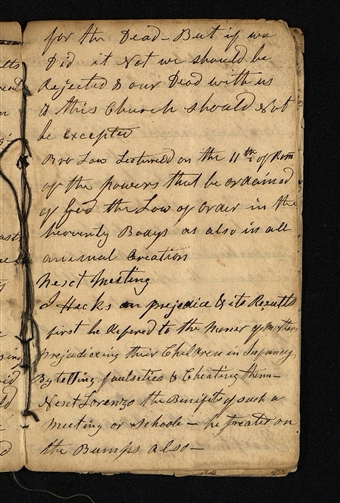 for the Dead - But if we
Did it Not we should be
Rejected & our Dead with us
& this Church should Not
be Excepted
Bro Law Lectured on the 11th of Rom
of the powers that be ordained
of God the Law of order in the
heavenly Bodys as also in all
animal Creation
Next Meeting
J Hacks on prejudice & its Results
first he Refered to the Maner of Mothers
prejudiceing their Children in Infancy
By telling faulseties & Cheating them -
Next Lorenzo the Benifits of such a
Meeting or Schoole - he treated on
the Bumps also -